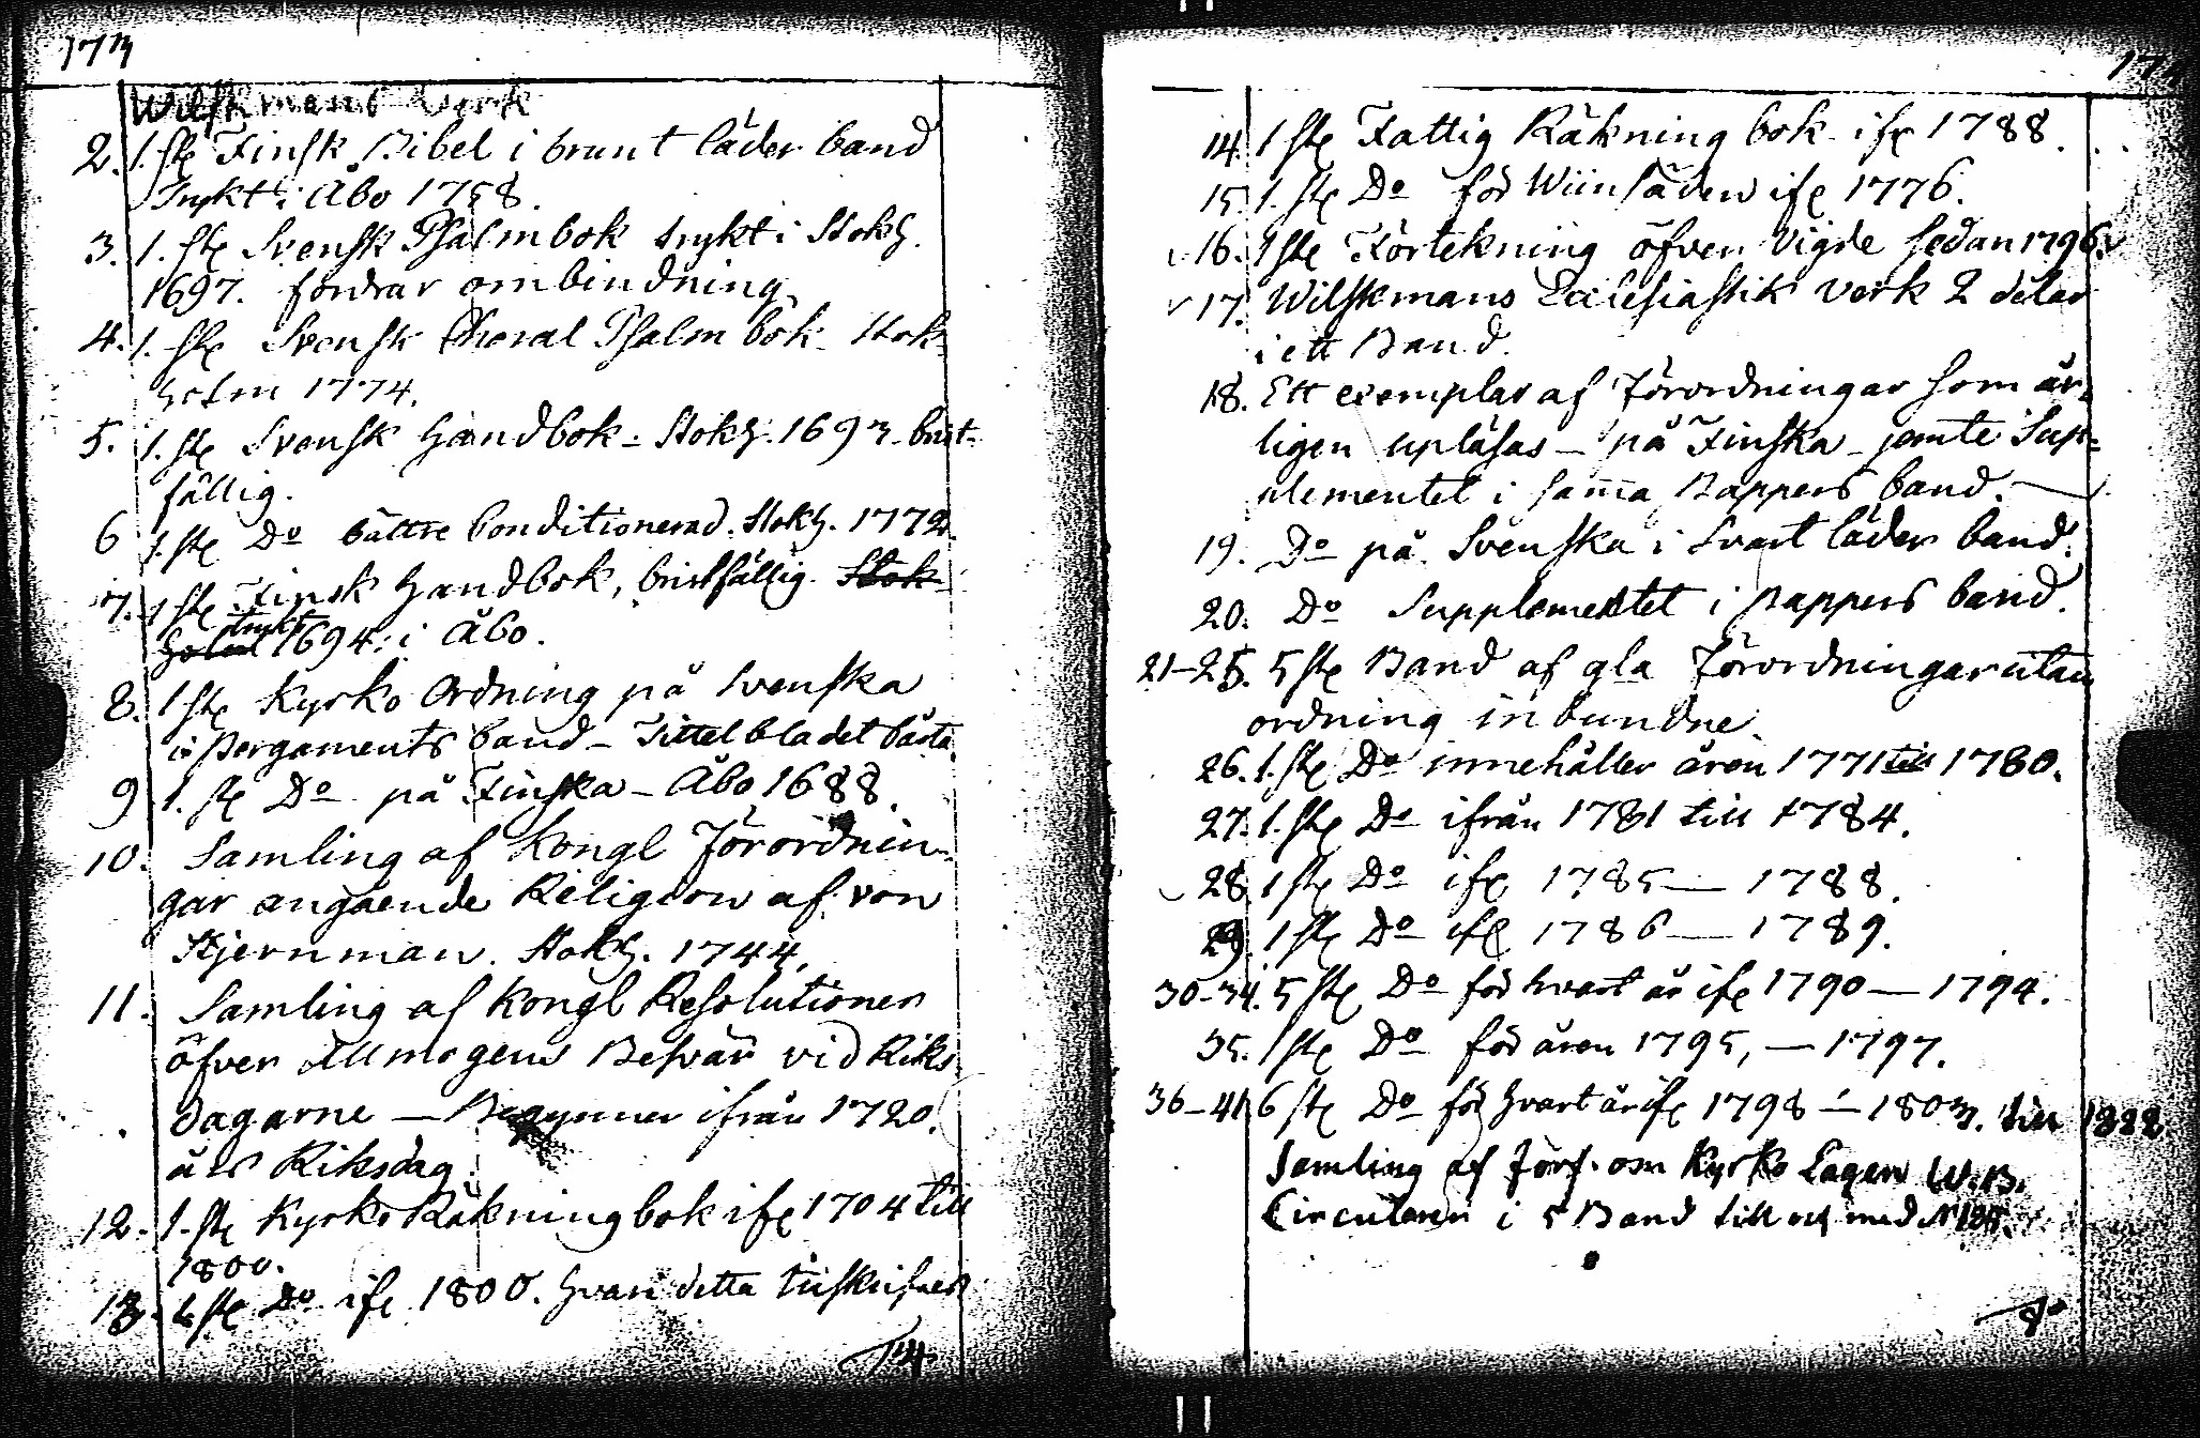 173
Wilskmans Verk
2. 1. st Finsk Bibel i brunt läder band
Trykt i Åbo 1758.
3. 1. st Svensk Psalmbok trykt i Stokh.
1697. fordrar ombindning.
4. 1. st Svensk Choral Psalm bok - Stok-
holm 1774.
5. 1. st Svensk Handbok - Stokh. 1693 - brist-
fällig.
6 1. st Do bättre Conditionerad. Stokh. 1772.
7. 1 st Finsk Handbok, bristfällig. Stok-
holm trykt 1694. i Åbo.
8. 1 st Kyrko Ordning på Svenska
i Pergaments band - Tittelbladet borta.
9 1. st Do på Finska - Åbo 1688.
10. Samling af Kongl Förordnin-
gar angående Religion af von
Stjernman. Stokh. 1744.
11. Samling af Kongl Resolutioner
öfver Allmogens Besvär vid Riks
dagarne — Begynner ifrån 1720.
års Riksdag.
12. 1. st Kyrko Räkningbok ifr 1704 till
1800.
13. 1 st Do ifr 1800. hvari detta tilskrifves
14
14. 1 st Fattig Räkning bok ifr 1788.
15. 1. st Do för Wiinsäden ifr 1776.
16. 1 st Förtekning öfver Vigde sedan 1796.
17. Wilskmans Ecclesiastik verk 2 delar
i ett Band.
18. Ett exemplar af Förordningar som år-
ligen upläsas - på Finska - jemte Sup-
plementet i samma Pappers band.
19. Do på Svenska i Svart läder band.
20. Do Supplementet i Pappers band.
21-25. 5 st Band af gla Förordningar utan
ordning inbundne.
26. 1. st Do innehåller åren 1771 till 1780.
27. 1. st Do ifrån 1781 till 1784.
28 1 st Do ifr 1785 — 1788.
29. 1 st Do ifr 1786 — 1789.
30-34. 5 st Do för hvart år ifr 1790 — 1794.
35. 1 st Do för åren 1795, — 1797.
36-41 6 st Do för hvart år ifr 1798 — 1803. till 1822
Samling af Förf. om Kyrko Lagen W.B.
Circulairer i 5 Band till och med